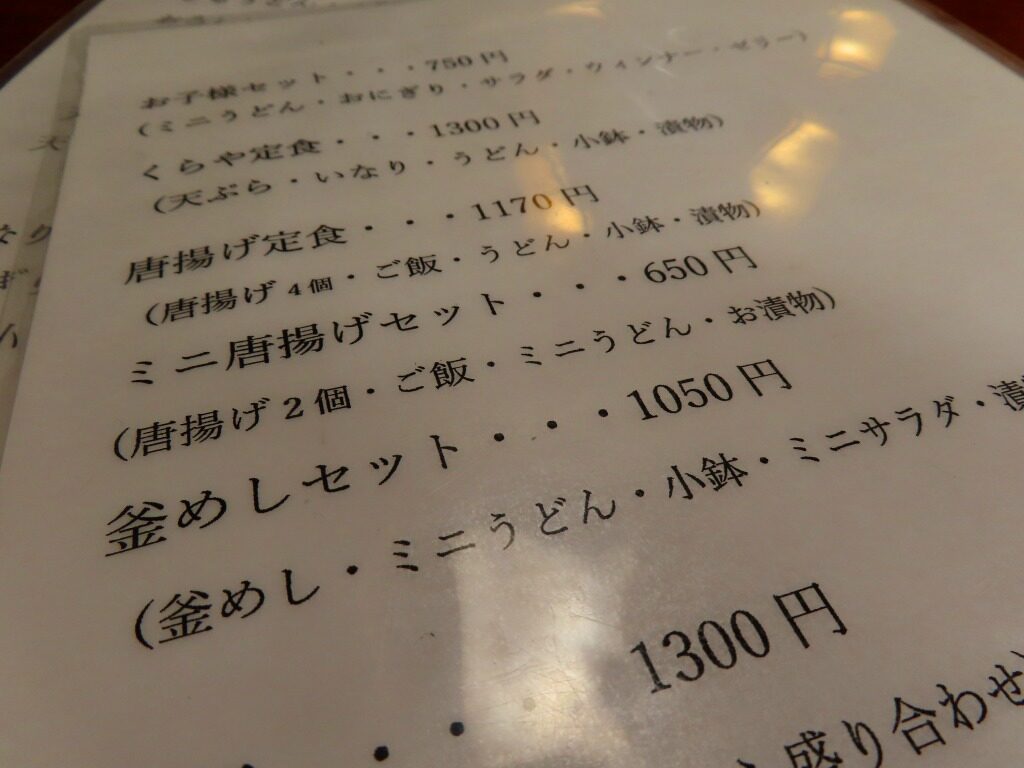 お子様セット・・・750円
(ミニうどん・おにぎり・サラダ・ウィンナー・ゼリー)
くらや定食・・・1300円
(天ぷら・いなり・うどん・小鉢・漬物)
唐揚げ定食・・・1170円
(唐揚げ4個・ご飯・うどん・小鉢・漬物)
ミニ唐揚げセット・・・650円
(唐揚げ2個・ご飯・ミニうどん・お漬物)
釜めしセット・・・1050円
(釜めし・ミニうどん・小鉢・ミニサラダ・漬
・・・1300円
盛り合わせ